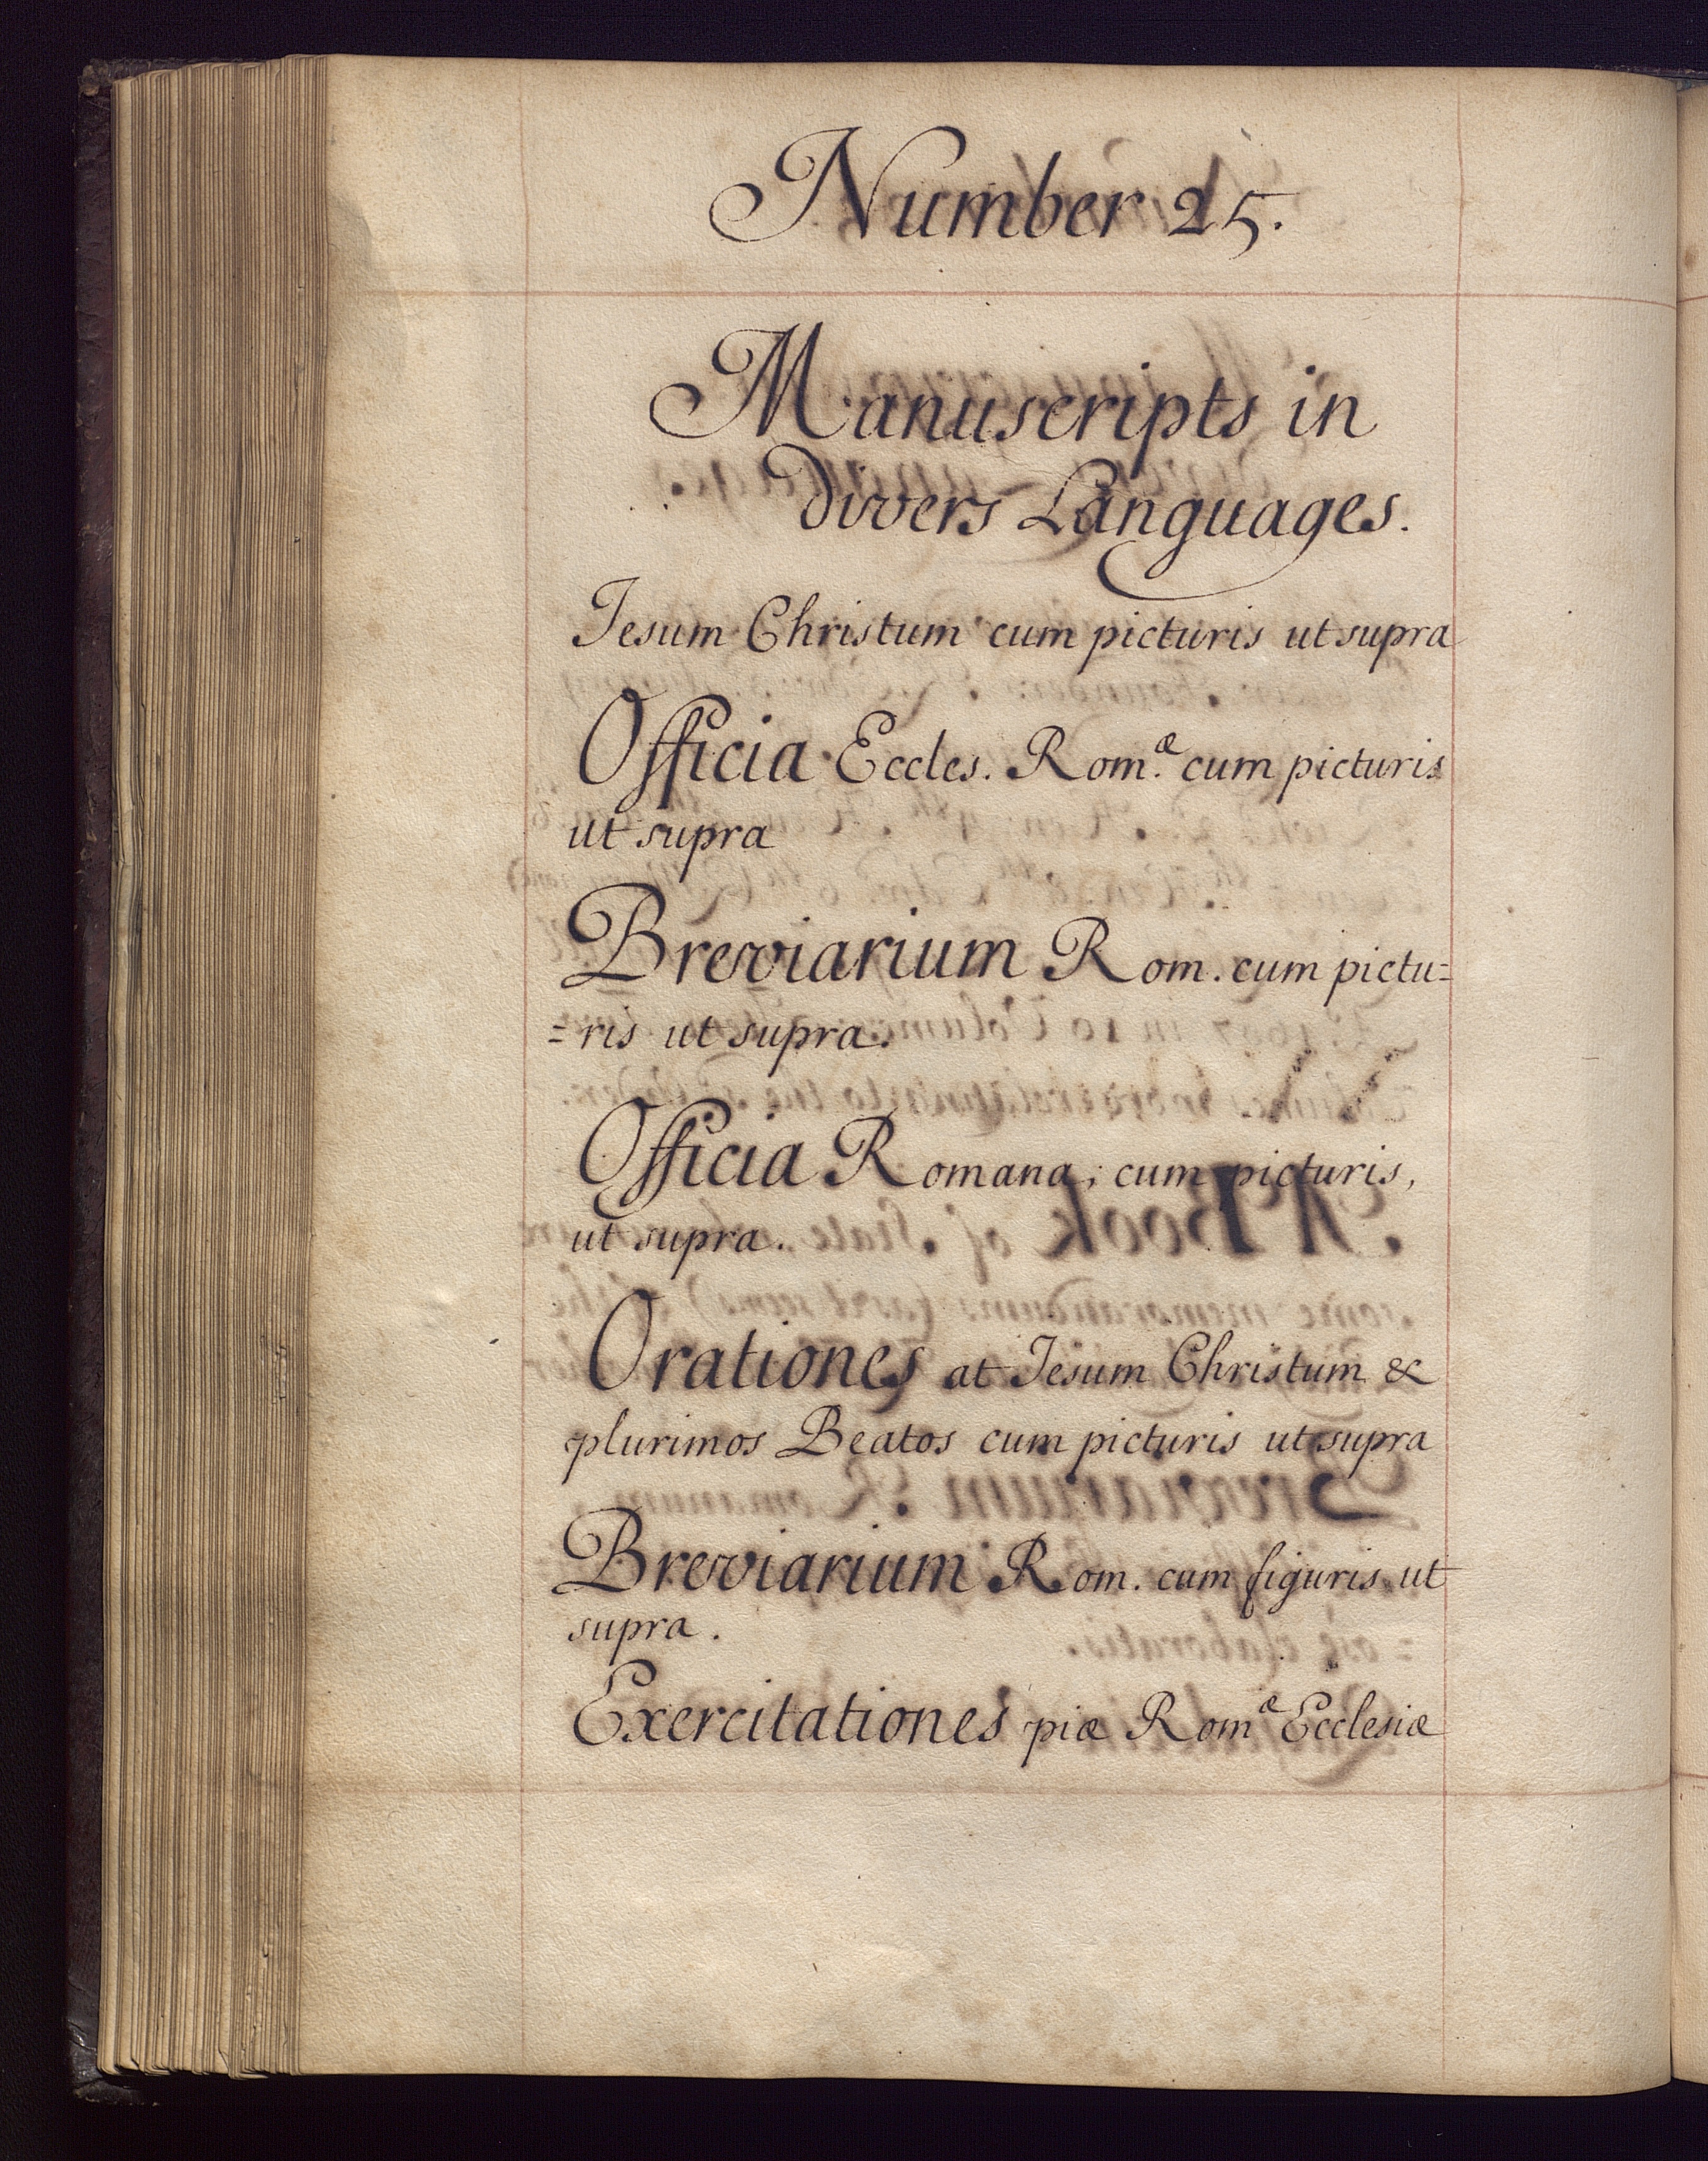 Number 25.
Manuscripts in
divers Languages.
Jesum Christum cum picturis ut supra
Officia Eccles. Rom.æ cum picturis
ut supra
Breviarium Rom. cum pictu=
=ris ut supra.
Officia Romana, cum picturis,
ut supra.
Orationes at Jesum Christum &
plurimos Beatos cum picturis ut supra
Breviarium Rom. cum figuris ut
supra.
Exercitationes piæ Romæ Ecclesiæ